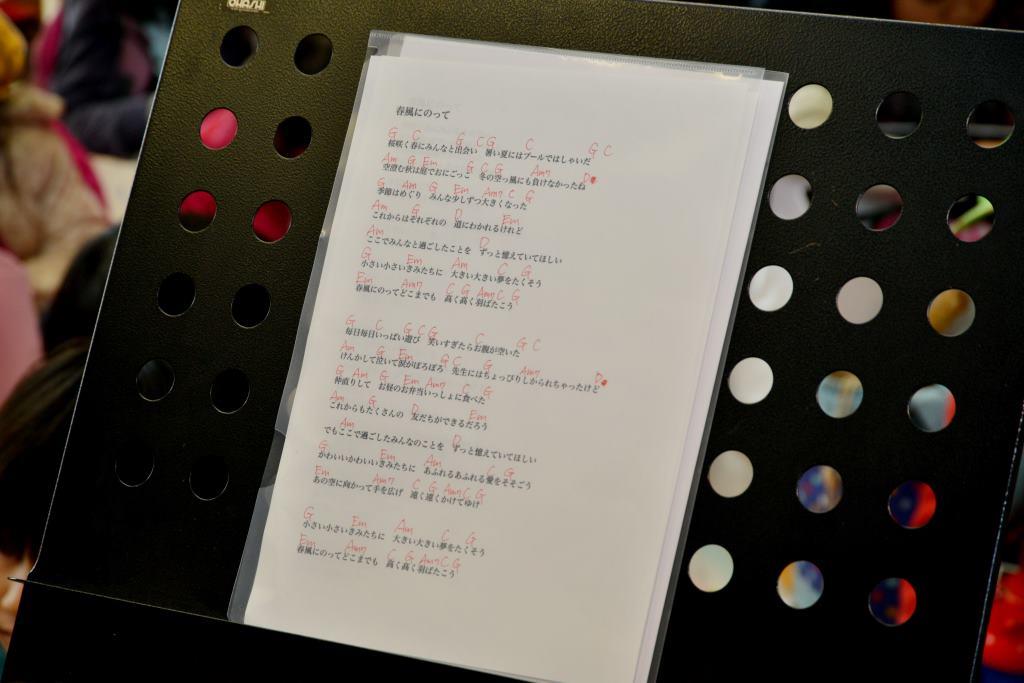 OHASHI
春風にのって
G C G C G C G C
桜咲く春にみんなと出会い 暑い夏にはプールではしゃいだ
Am G Em G C G Am7 D
空澄む秋は庭でおにごっこ 冬の空っ風にも負けなかったね
G Am G Em Am7 C G
季節はめぐり みんな少しずつ大きくなった
Am G D Em
これからはそれぞれの 道にわかれるけれど
Am D
ここでみんなと過ごしたことを ずっと憶えていてほしい
G Em Am C G
小さい小さいきみたちに 大きい大きい夢をたくそう
Em Am7 C G Am7 C G
春風にのってどこまでも 高く高く羽ばたこう
G C G C G C G C
毎日毎日いっぱい遊び 笑いすぎたらお腹が空いた
Am G Em G C G Am7 D
けんかして泣いて涙がぽろぽろ 先生にはちょっぴりしかられちゃったけど
G Am G Em Am7 C G
仲直りして お昼のお弁当いっしょに食べた
Am G D Em
これからもたくさんの 友だちができるだろう
Am D
でもここで過ごしたみんなのことを ずっと憶えていてほしい
G Em Am C G
かわいいかわいいきみたちに あふれるあふれる愛をそそごう
Em Am7 C G Am7 C G
あの空に向かって手を広げ 遠く遠くかけてゆけ
G Em Am C G
小さい小さいきみたちに 大きい大きい夢をたくそう
Em Am7 C G Am7 C G
春風にのってどこまでも 高く高く羽ばたこう